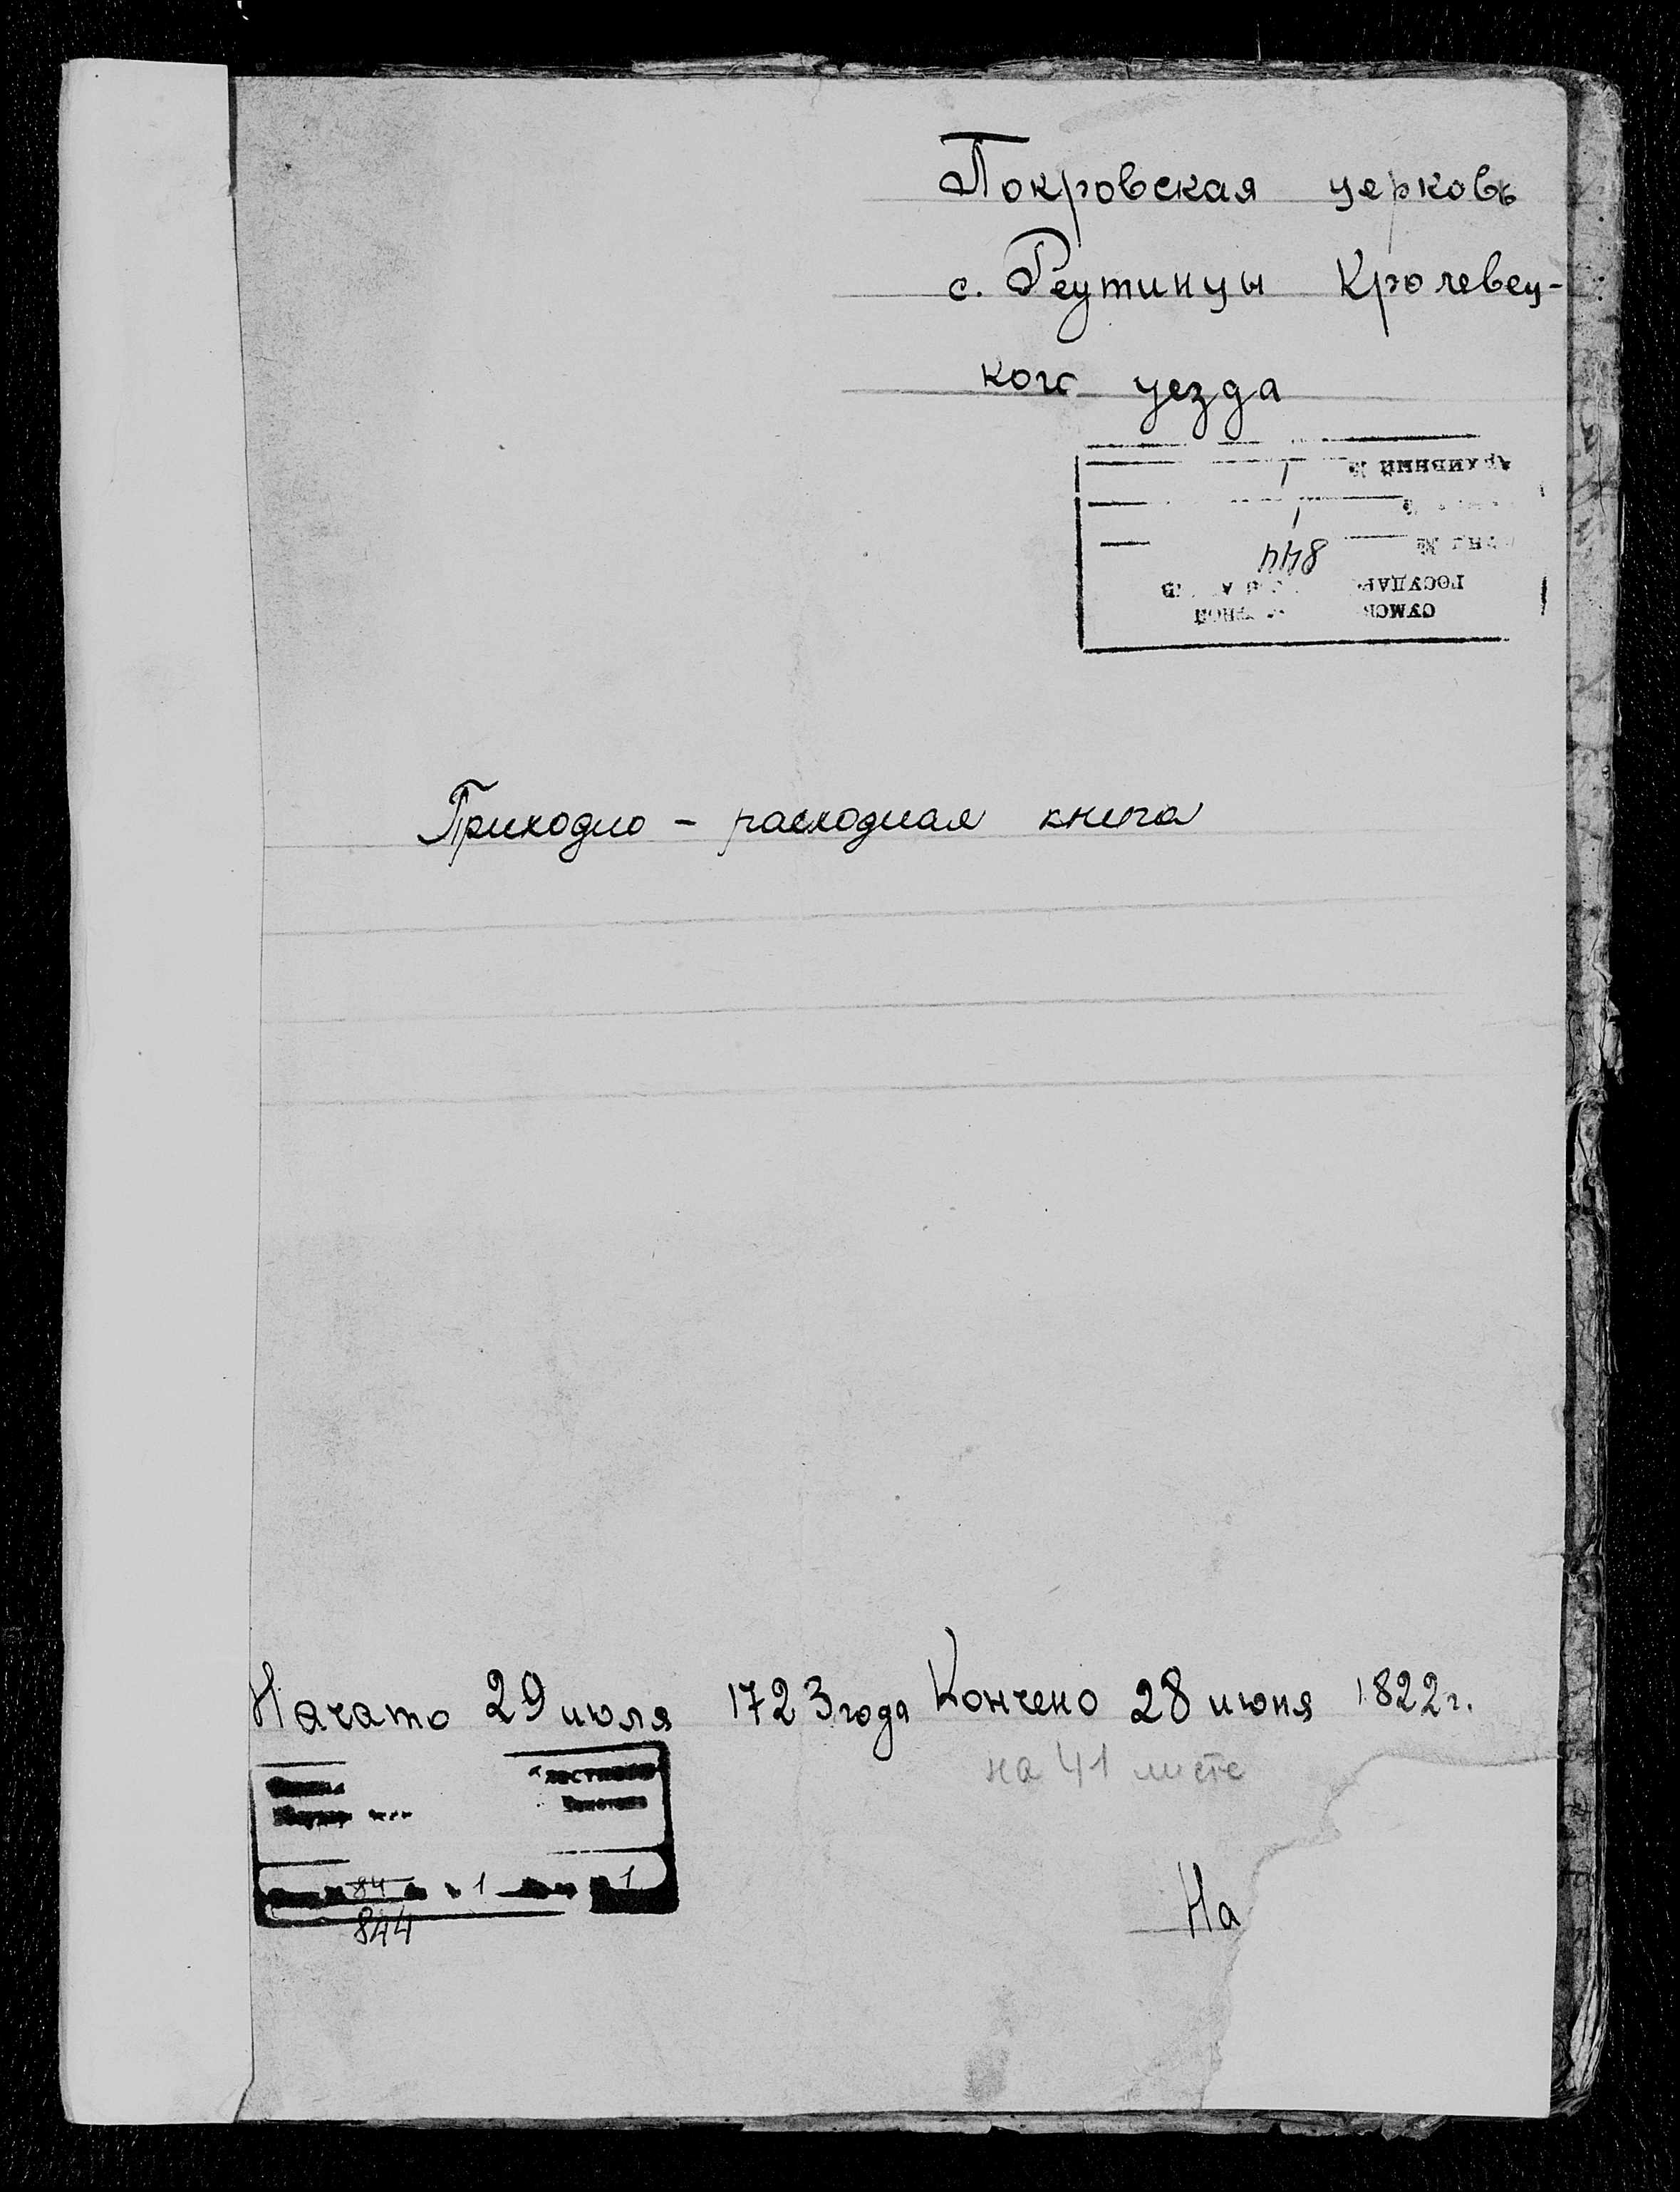 Покровская церковь
с. Реутинцы Кролевец-
кого уезда
АРХИВНЫЙ №
1
1
№
844
ГОСУДАР
СУМСК
Приходно - расходная книга
Начато 29 июля 1723 года Кончено 28 июня 1822 г.
на 41 листе
84 1 1
844
На